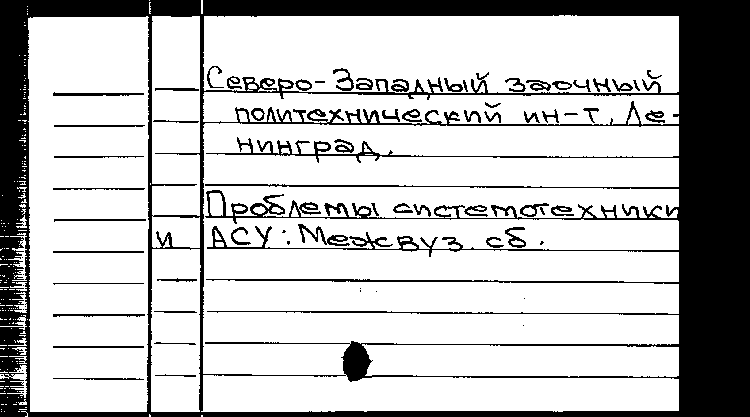 Северо-Западный заочный
политехнический ин-т, Ле-
нинград.
Проблемы системотехники
и АСУ: Межвуз. сб.